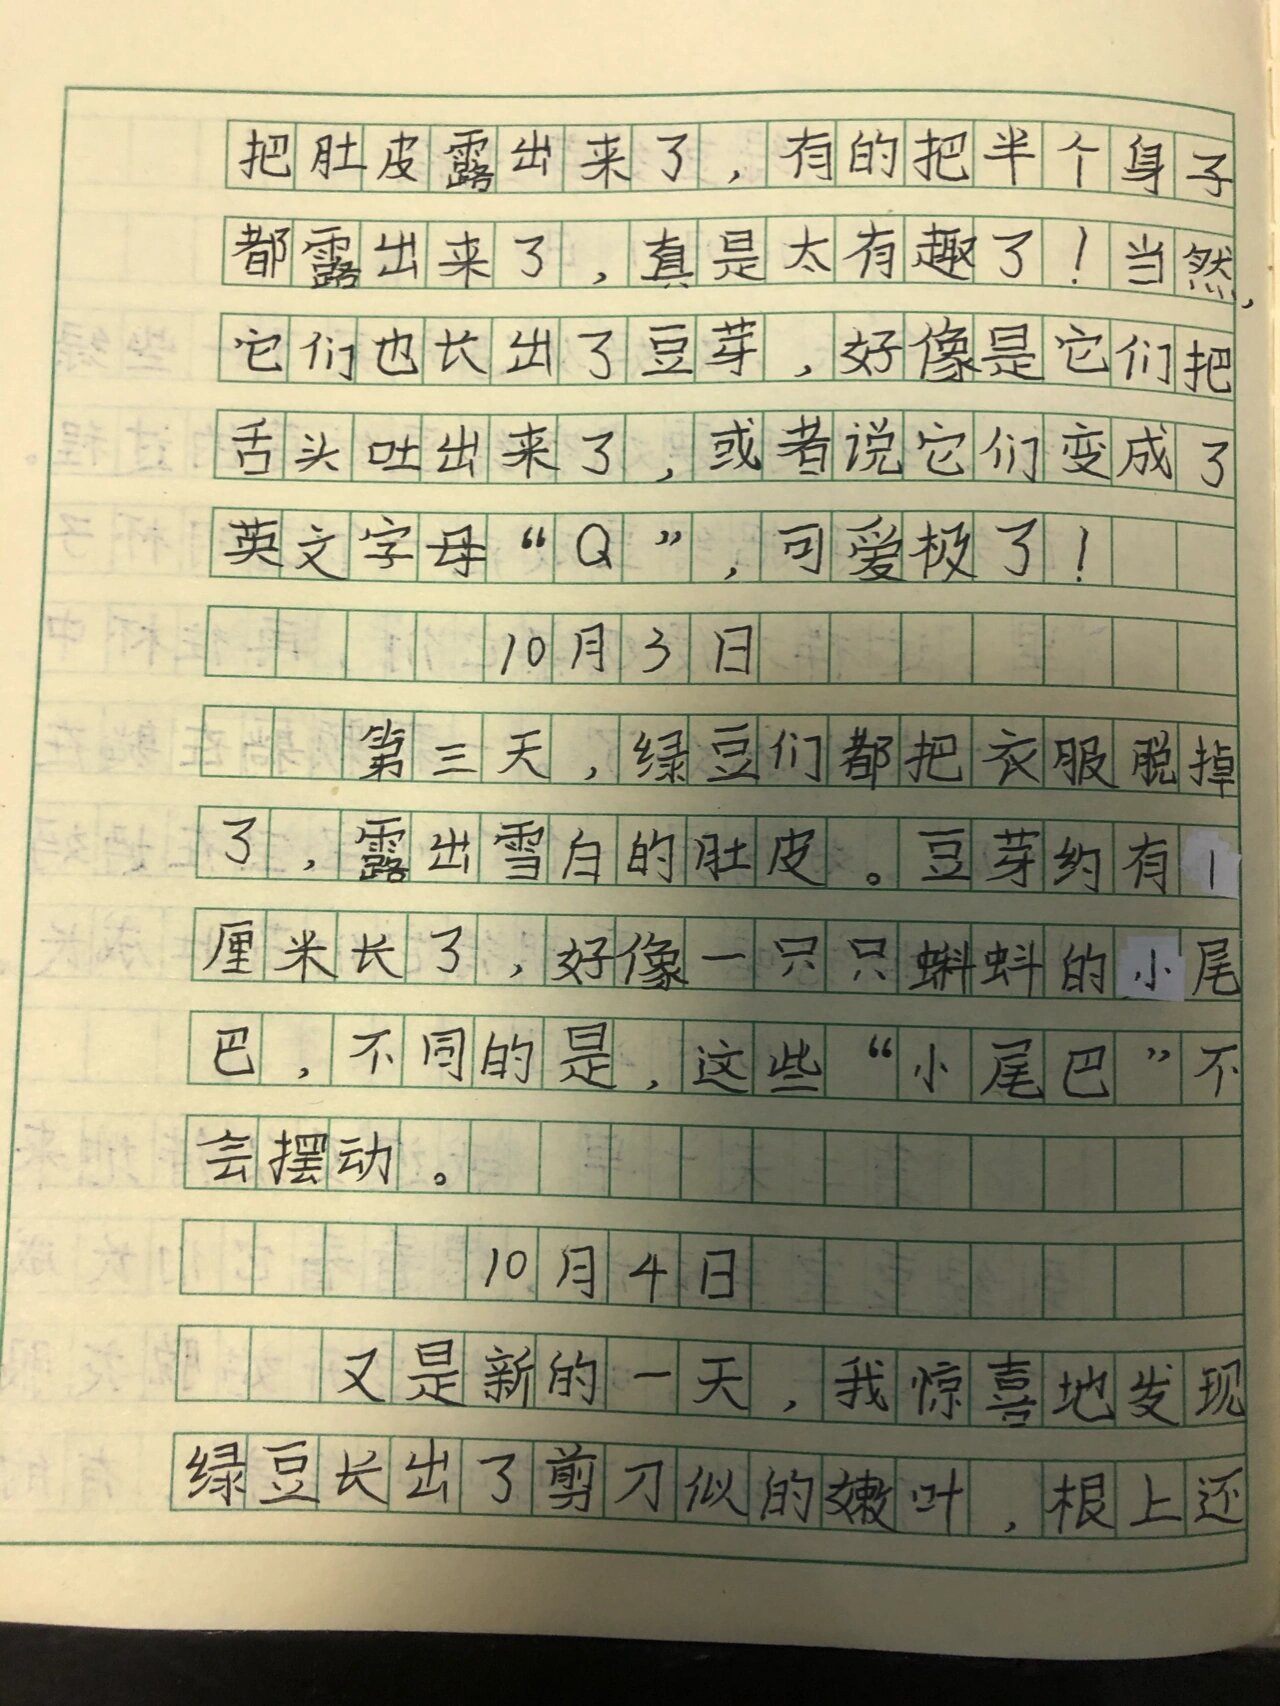 把肚皮露出来了，有的把半个身子
都露出来了，真是太有趣了！当然，
它们也长出了豆芽，好像是它们把
舌头吐出来了，或者说它们变成了
英文字母“Q”，可爱极了！
10月3日
第三天，绿豆们都把衣服脱掉
了，露出雪白的肚皮。豆芽约有1
厘米长了，好像一只只蝌蚪的小尾
巴，不同的是，这些“小尾巴”不
会摆动。
10月4日
又是新的一天，我惊喜地发现
绿豆长出了剪刀似的嫩叶，根上还